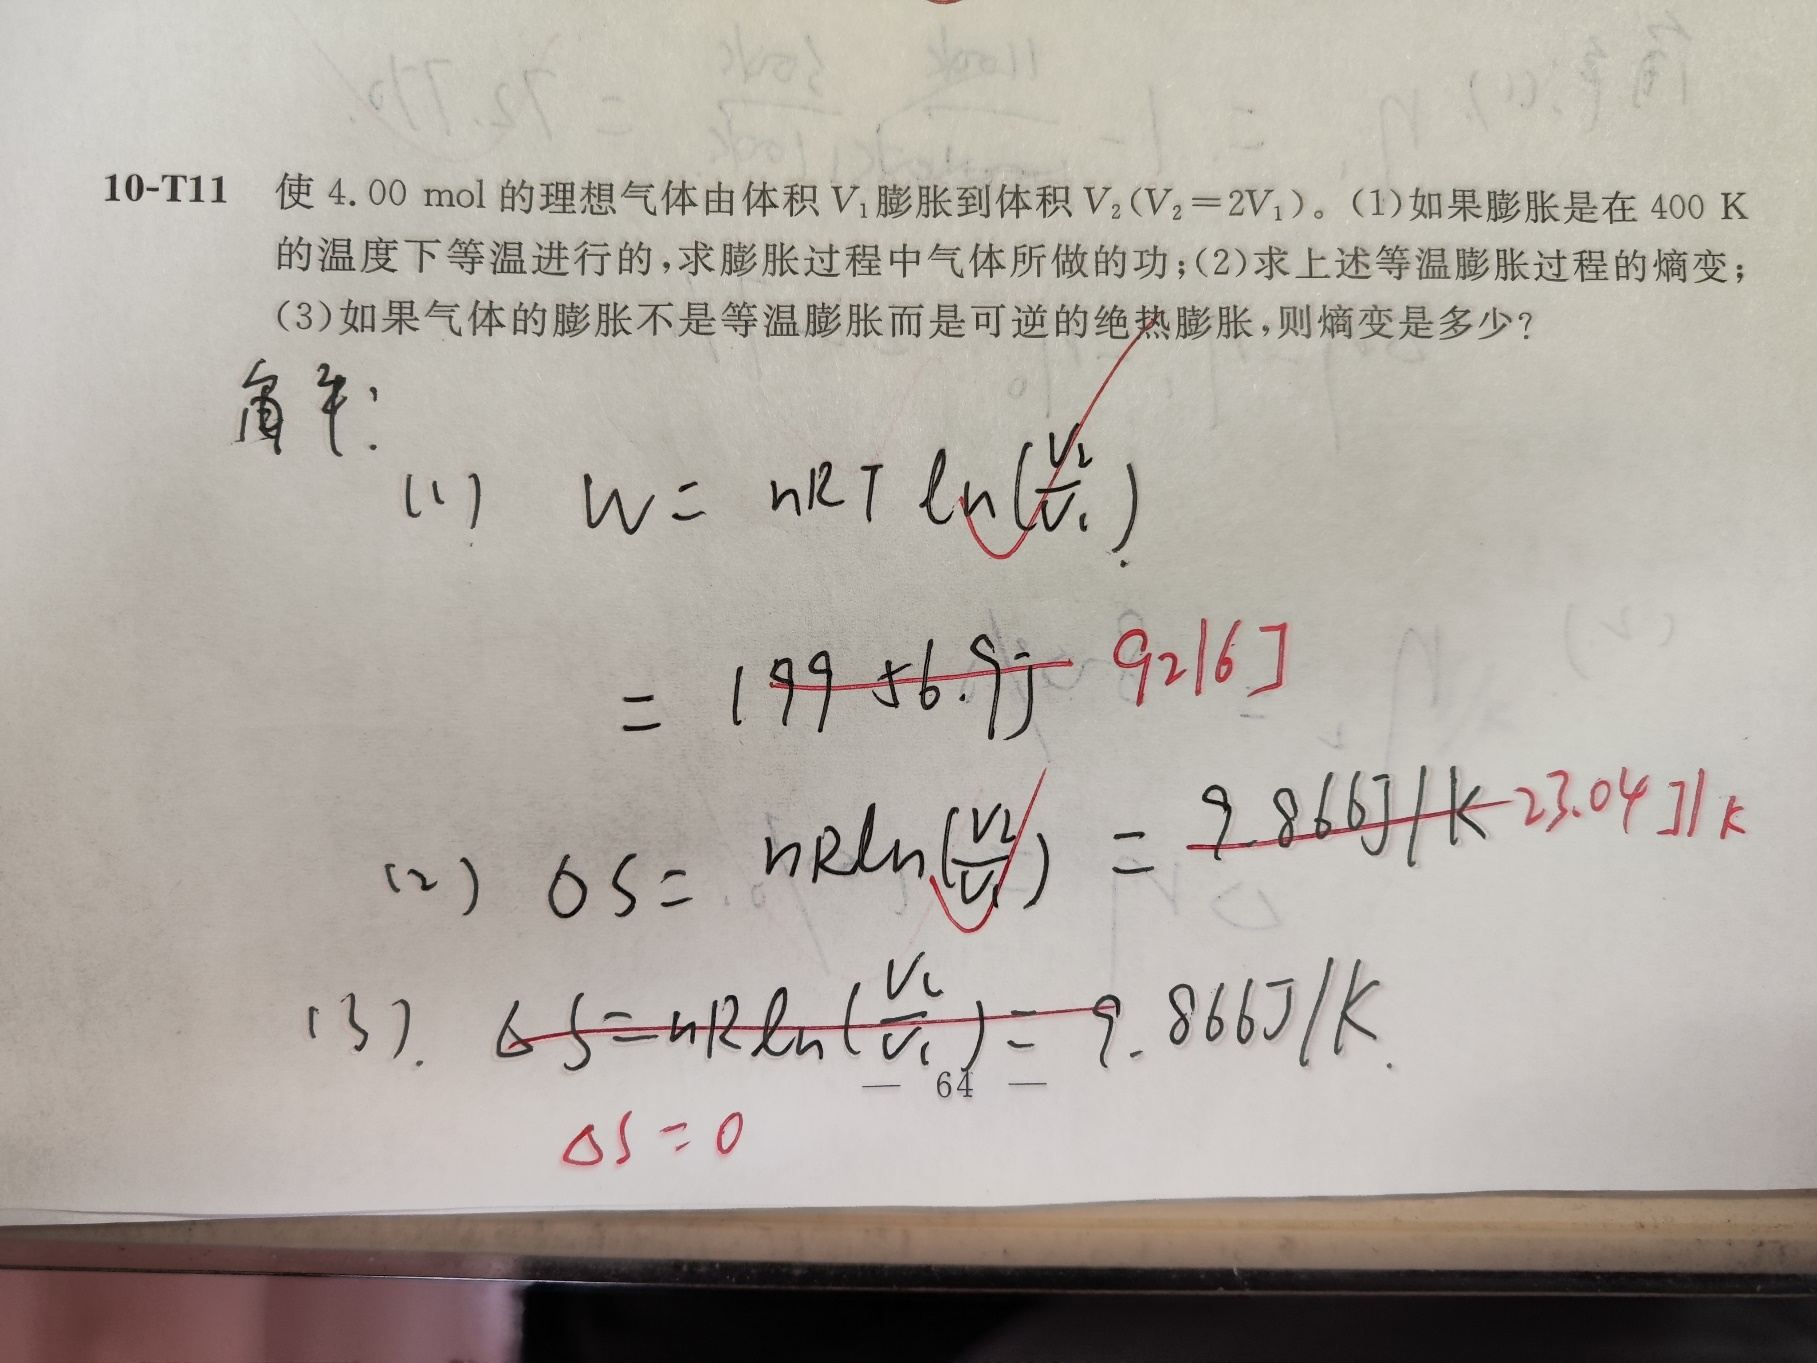 10-T11 使 4.00 mol 的理想气体由体积 V₁膨胀到体积 V₂(V₂=2V₁)。(1)如果膨胀是在 400 K
的温度下等温进行的,求膨胀过程中气体所做的功;(2)求上述等温膨胀过程的熵变;
(3)如果气体的膨胀不是等温膨胀而是可逆的绝热膨胀,则熵变是多少?
解:
(1) W = nRT ln(V₂/V₁).
= 19956.9J 9216J
(2) ΔS = nRln(V₂/V₁) = 9.866J/K 23.04J/K
(3). ΔS = nRln(V₂/V₁) = 9.866J/K.
— 64 —
ΔS = 0